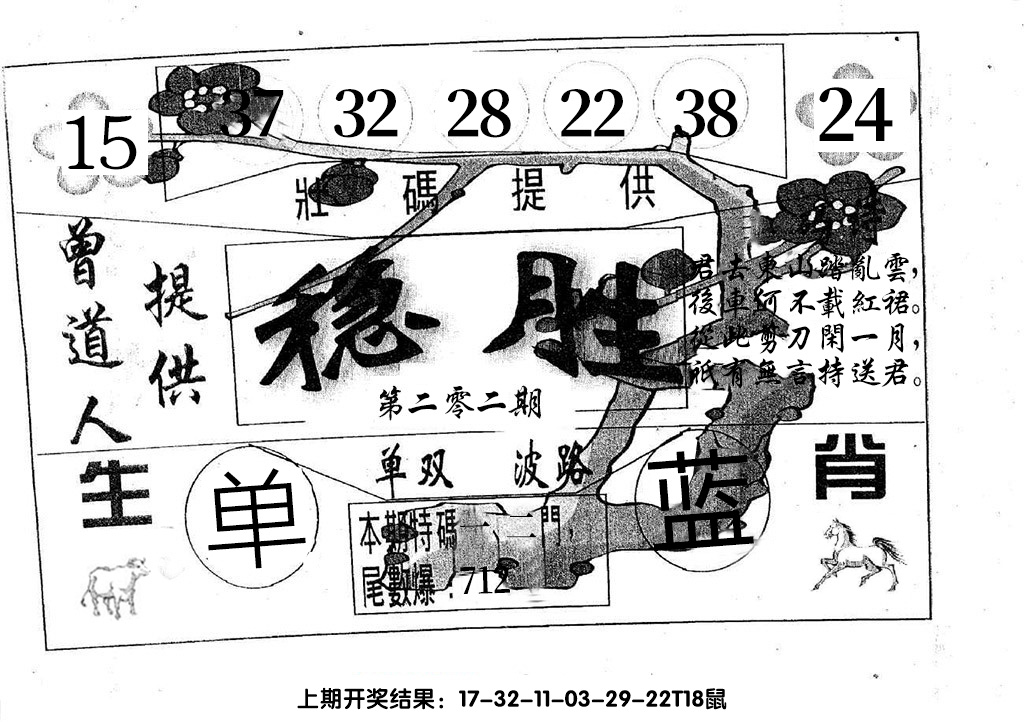 15 37 32 28 22 38 24
壯碼提供
特
曾道人
提供
稳胜
第二零二期
君去東山踏亂雲，
後車何不載紅裙。
從此剪刀閑一月，
祇有無言持送君。
单双 波路
生
肖
单
蓝
本期特碼一、二門，
尾數爆：712
上期开奖结果：17-32-11-03-29-22T18鼠